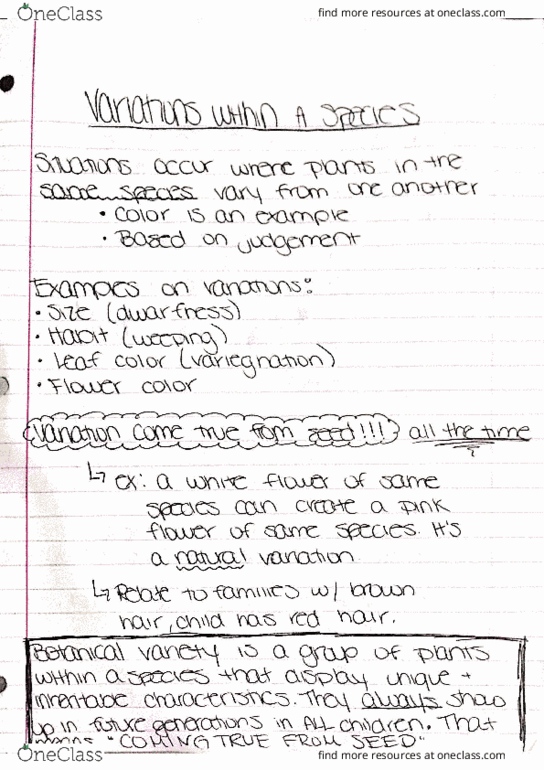 OneClass
find more resources at oneclass.com
Variations within A Species
Situations occur where plants in the
same species vary from one another
• Color is an example
• Based on judgement
Examples on variations:
• Size (dwarfness)
• Habit (weeping)
• Leaf color (variegnation)
• Flower color
Variation come true from seed!!! all the time
?
↳ ex: a white flower of same
species can create a pink
flower of same species. It's
a natural variation
↳ Relate to families w/ brown
hair, child has red hair.
Botanical variety is a group of plants
within a species that display unique +
inheritable characteristics. They always show
up in future generations in ALL children. That
means "COMING TRUE FROM SEED"
OneClass
find more resources at oneclass.com